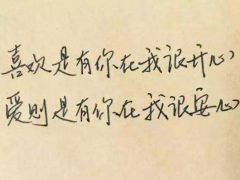 喜欢是有你在我很开心
爱则是有你在我很安心